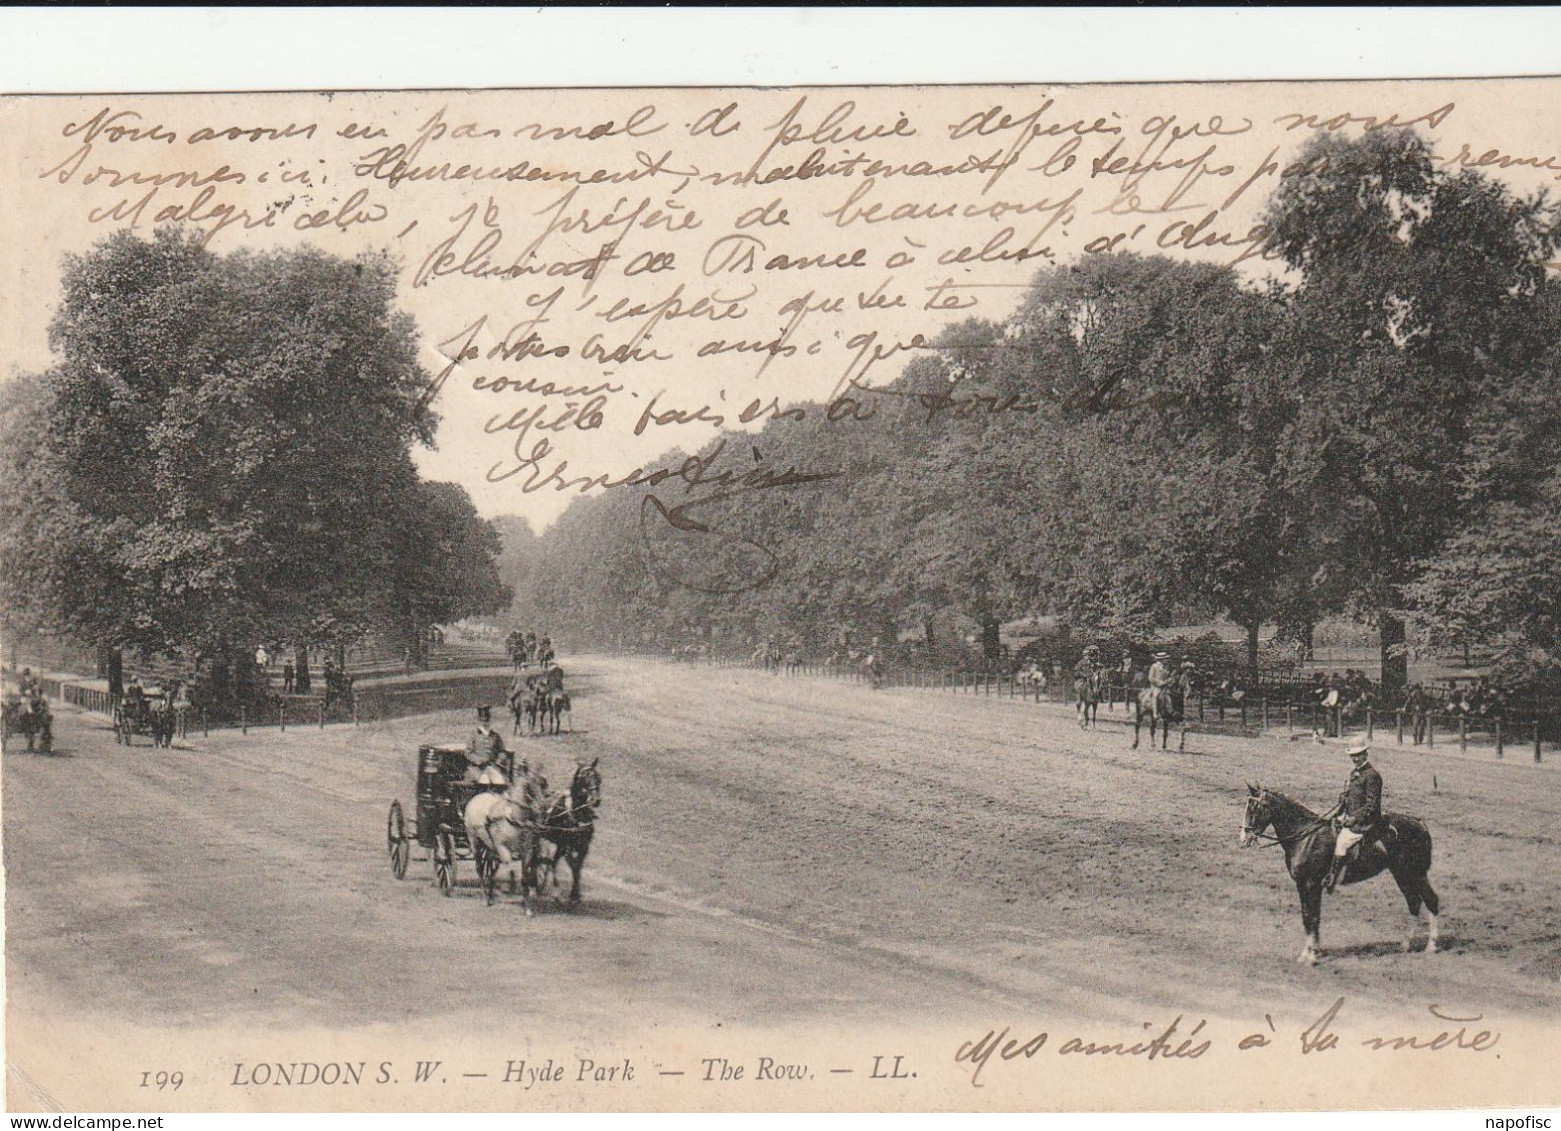 Nous avons eu pas mal de pluie depuis que nous
sommes ici. Heureusement, maintenant le temps par
Malgré cela, je préfère de beaucoup le
climat de France à celui d'Ang
J'espère que tu te
portes bien ainsi que
cousin.
Mille baisers à tous deux
Ernestine
Mes amitiés à ta mère.
199 LONDON S. W. — Hyde Park — The Row. — LL.
napofisc